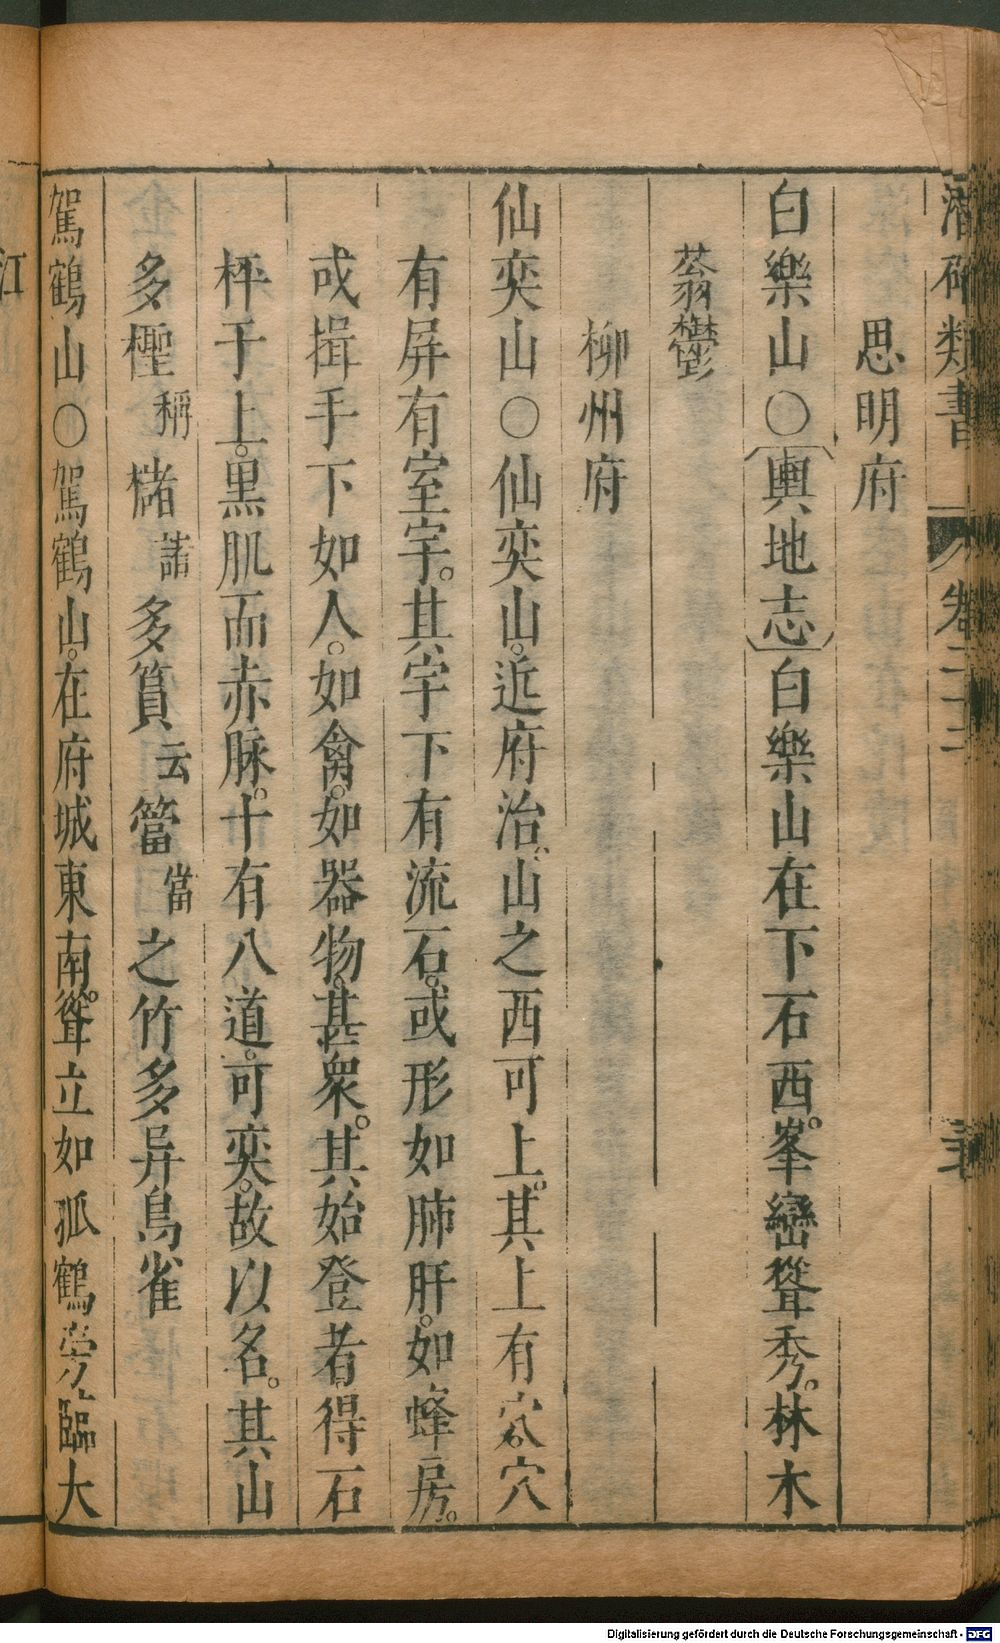 潛確類書 卷二十三
思明府
白樂山○〔輿地志〕白樂山在下石西。峯巒聳秀。林木
蓊鬱
柳州府
仙奕山○仙奕山。近府治。山之西可上。其上有穴。穴
有屏有室宇。其宇下有流石。或形如肺肝。如蜂房。
或揖手下如人。如禽。如器物。甚衆。其始登者。得石
枰于上。黑肌而赤脉。十有八道。可奕。故以名。其山
多檉 稱 櫧 諸 多篔 云 簹 當 之竹多异鳥雀
駕鶴山○駕鶴山。在府城東南。聳立如孤鶴旁臨大
江
Digitalisierung gefördert durch die Deutsche Forschungsgemeinschaft - DFG